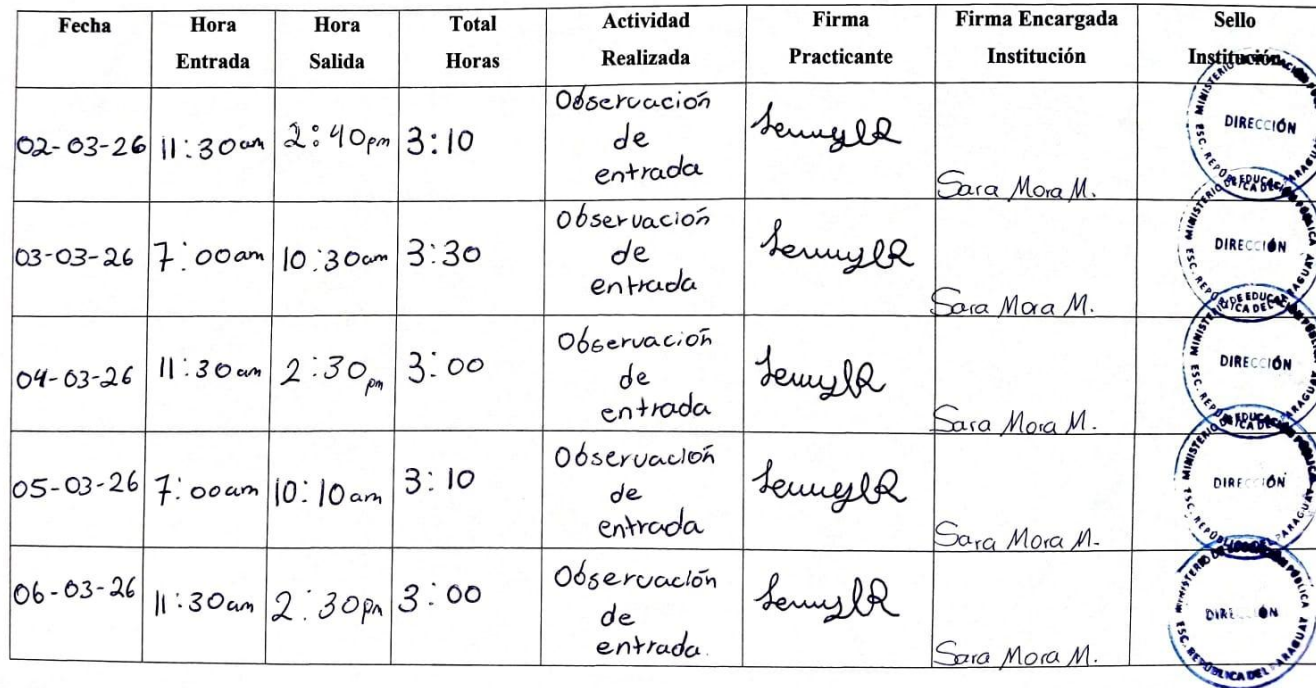 Fecha Hora Entrada Hora Salida Total Horas Actividad Realizada Firma Practicante Firma Encargada Institución Sello Institución
02-03-26 11:30am 2:40pm 3:10 Observación de entrada Sara Mora M. MINISTERIO DE EDUCACIÓN PÚBLICA DIRECCIÓN ESC. REPÚBLICA DEL PARAGUAY
03-03-26 7:00am 10:30am 3:30 Observación de entrada Sara Mora M. MINISTERIO DE EDUCACIÓN PÚBLICA DIRECCIÓN ESC. REPÚBLICA DEL PARAGUAY
04-03-26 11:30am 2:30pm 3:00 Observación de entrada Sara Mora M. MINISTERIO DE EDUCACIÓN PÚBLICA DIRECCIÓN ESC. REPÚBLICA DEL PARAGUAY
05-03-26 7:00am 10:10am 3:10 Observación de entrada Sara Mora M. MINISTERIO DE EDUCACIÓN PÚBLICA DIRECCIÓN ESC. REPÚBLICA DEL PARAGUAY
06-03-26 11:30am 2:30pm 3:00 Observación de entrada. Sara Mora M. MINISTERIO DE EDUCACIÓN PÚBLICA DIRECCIÓN ESC. REPÚBLICA DEL PARAGUAY